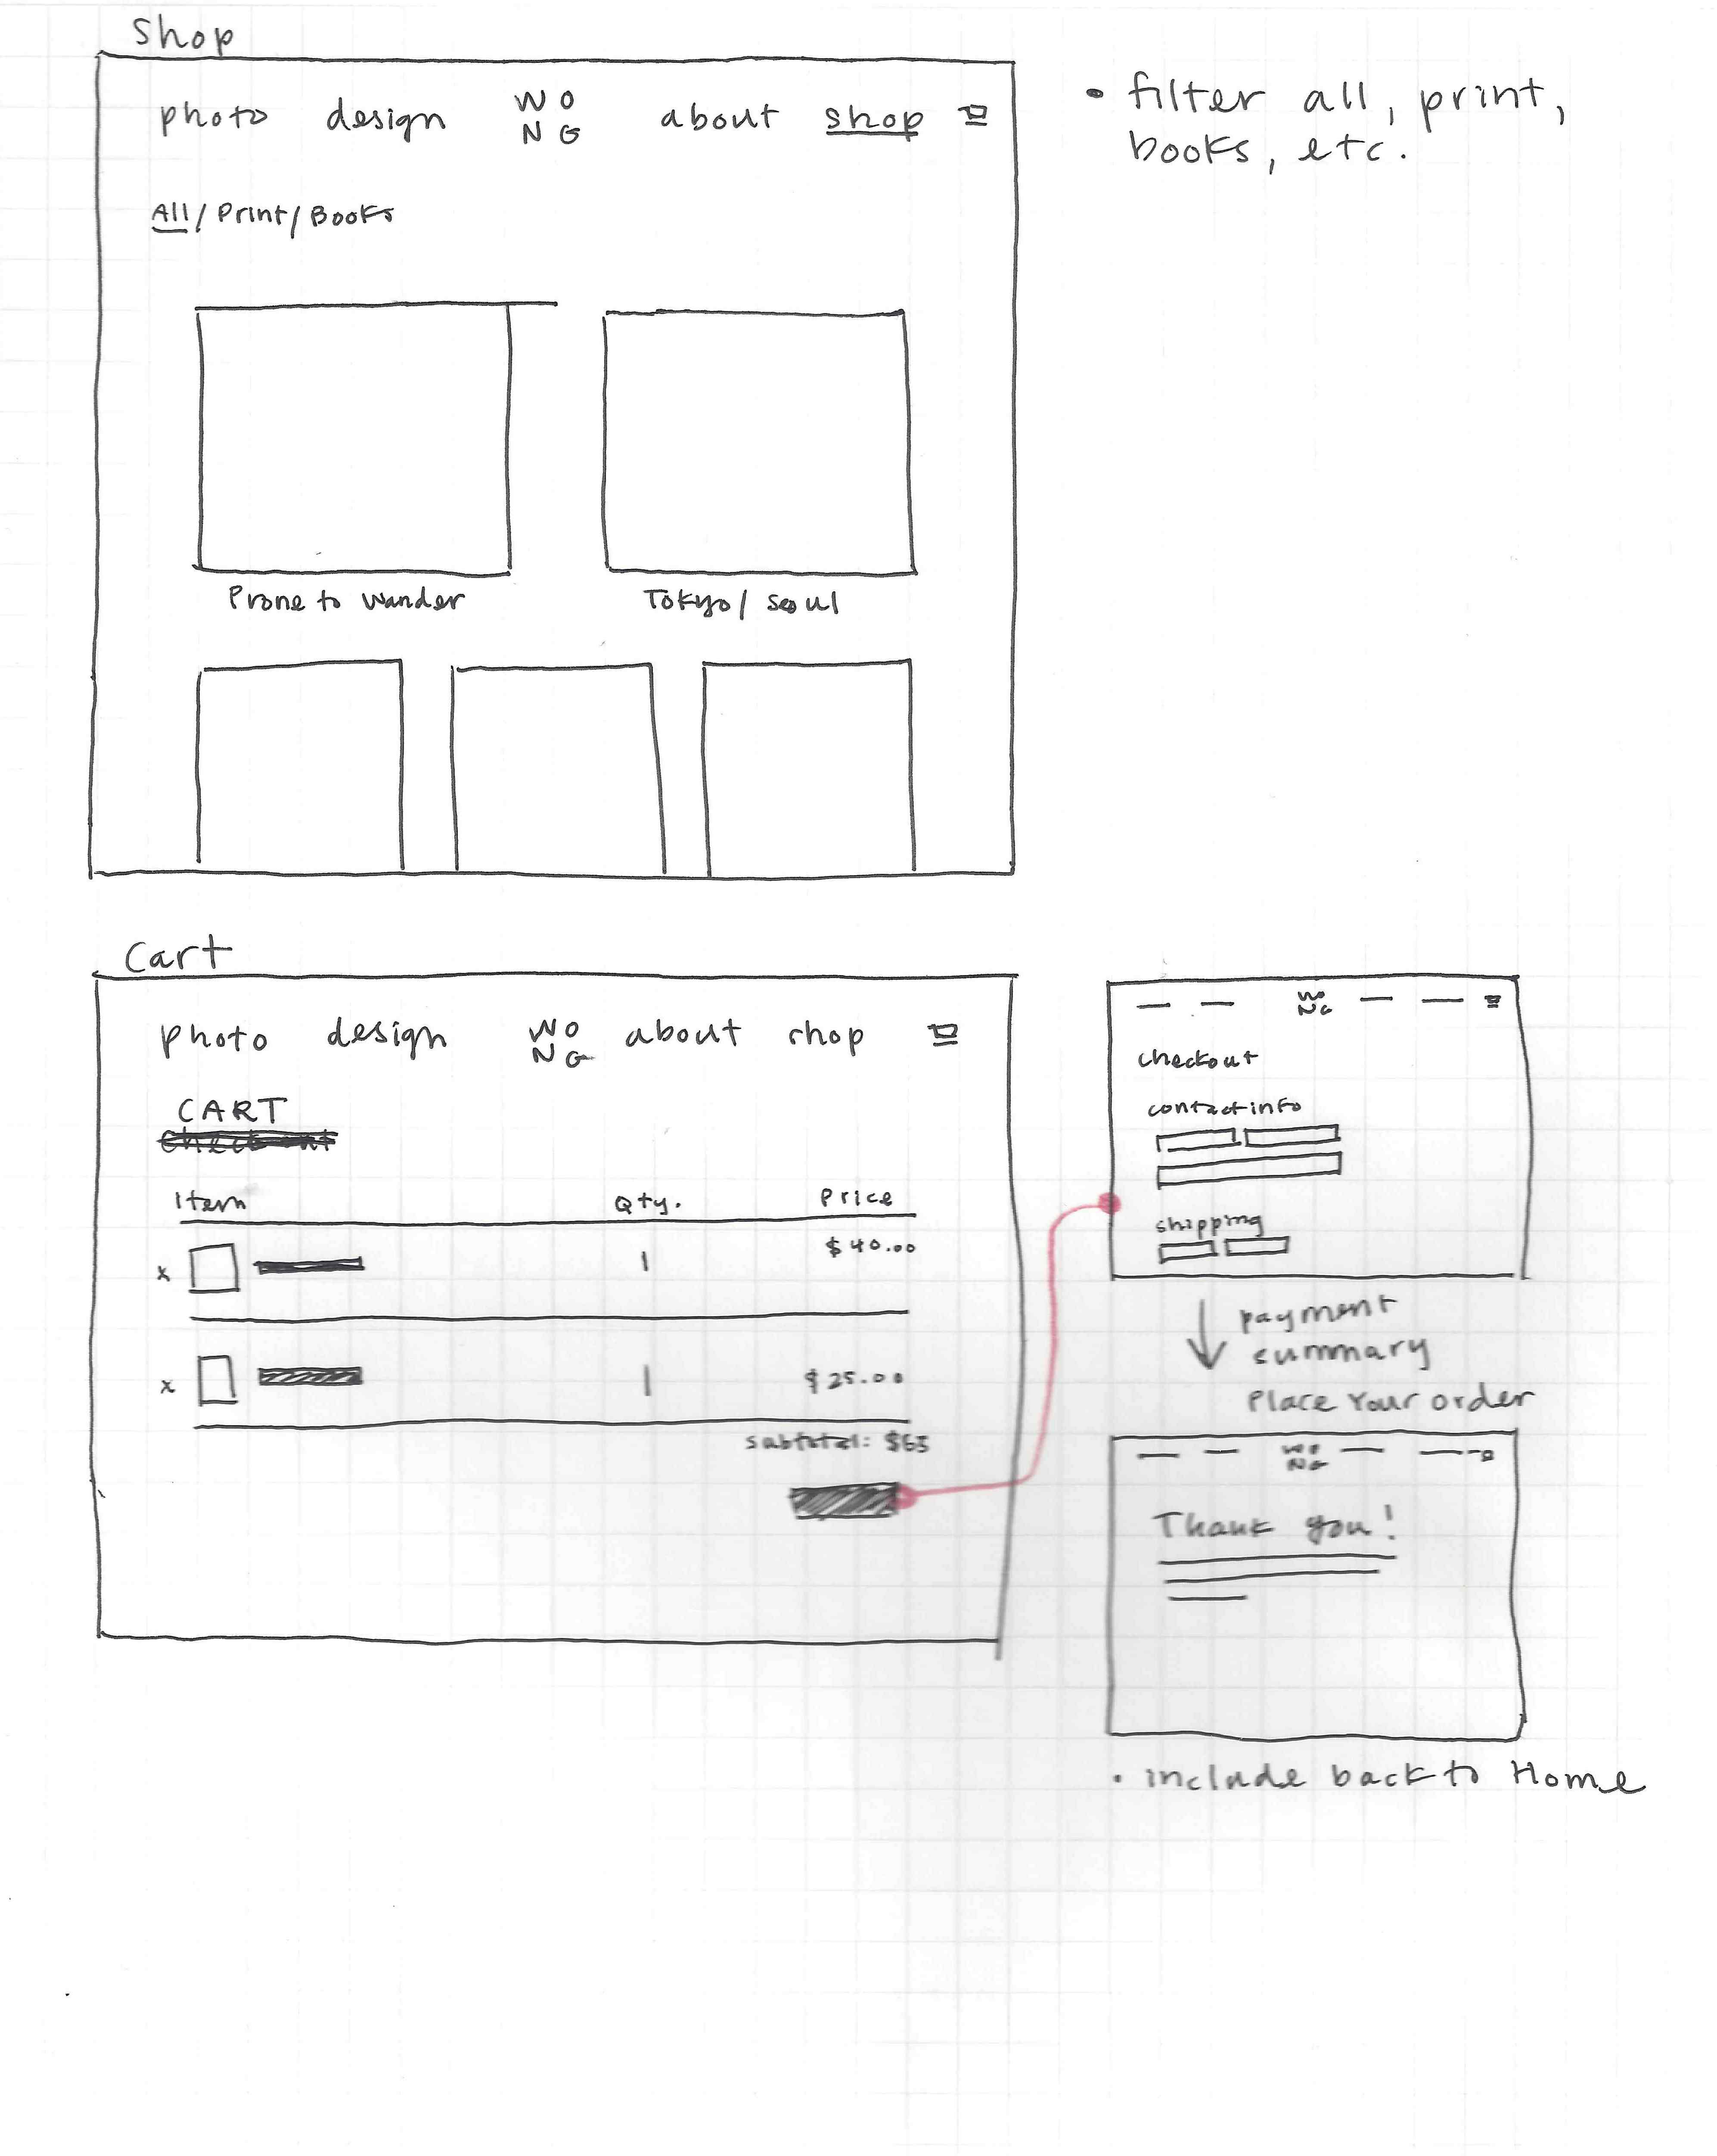 Shop
photo design WO about shop
NG
All / Print / Books
Prone to Wander
Tokyo / Seoul
• filter all, print,
books, etc.
Cart
photo design WO about shop
NG
CART
Checkout
Item Qty. Price
x 1 $40.00
x 1 $25.00
subtotal: $65
WO
NG
checkout
contact info
shipping
payment
summary
Place Your order
WO
NG
Thank you!
• include back to Home